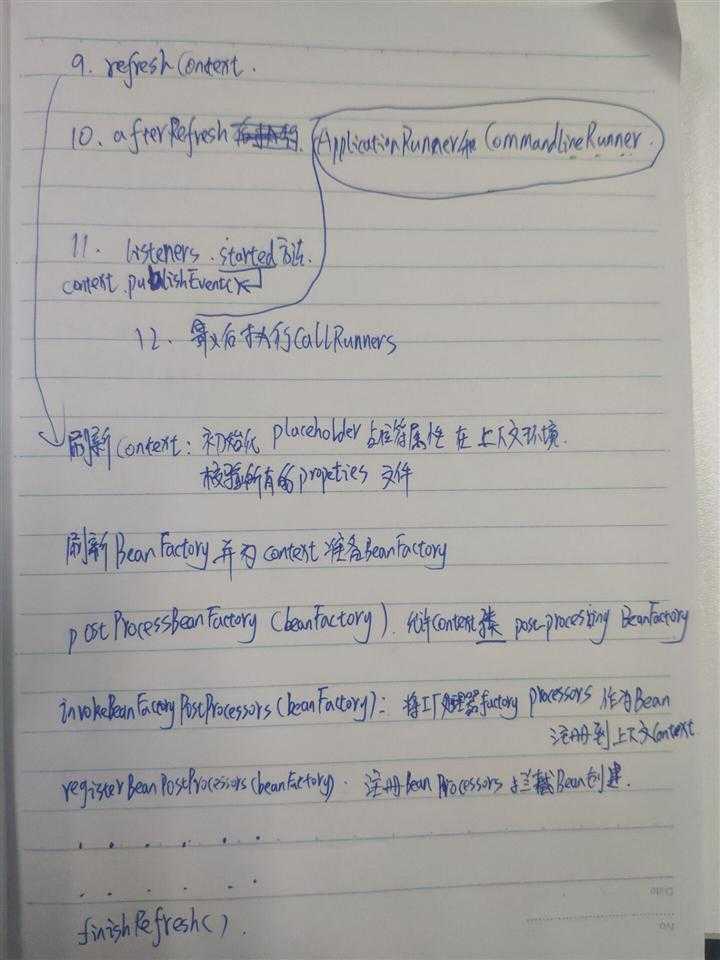 9. refreshContext.
10. afterRefresh ApplicationRunner和CommandlineRunner.
11. listeners.started方法.
context.publishEvent(x)
12. 最后执行CallRunners
刷新Context: 初始化 placeholder 占位符属性 在 上下文环境.
校验所有的propeties 文件
刷新BeanFactory 并为context 准备BeanFactory
postProcessBeanFactory(beanFactory). 允许context 类 post-processing BeanFactory
invokeBeanFactoryPostProcessors(beanFactory): 将工厂处理器factory processors 作为Bean
注册到上下文Context
registerBeanPostProcessors(beanFactory). 注册Bean Processors 拦截Bean创建.
. . . . . .
. . . . . .
finishRefresh().
Date
No